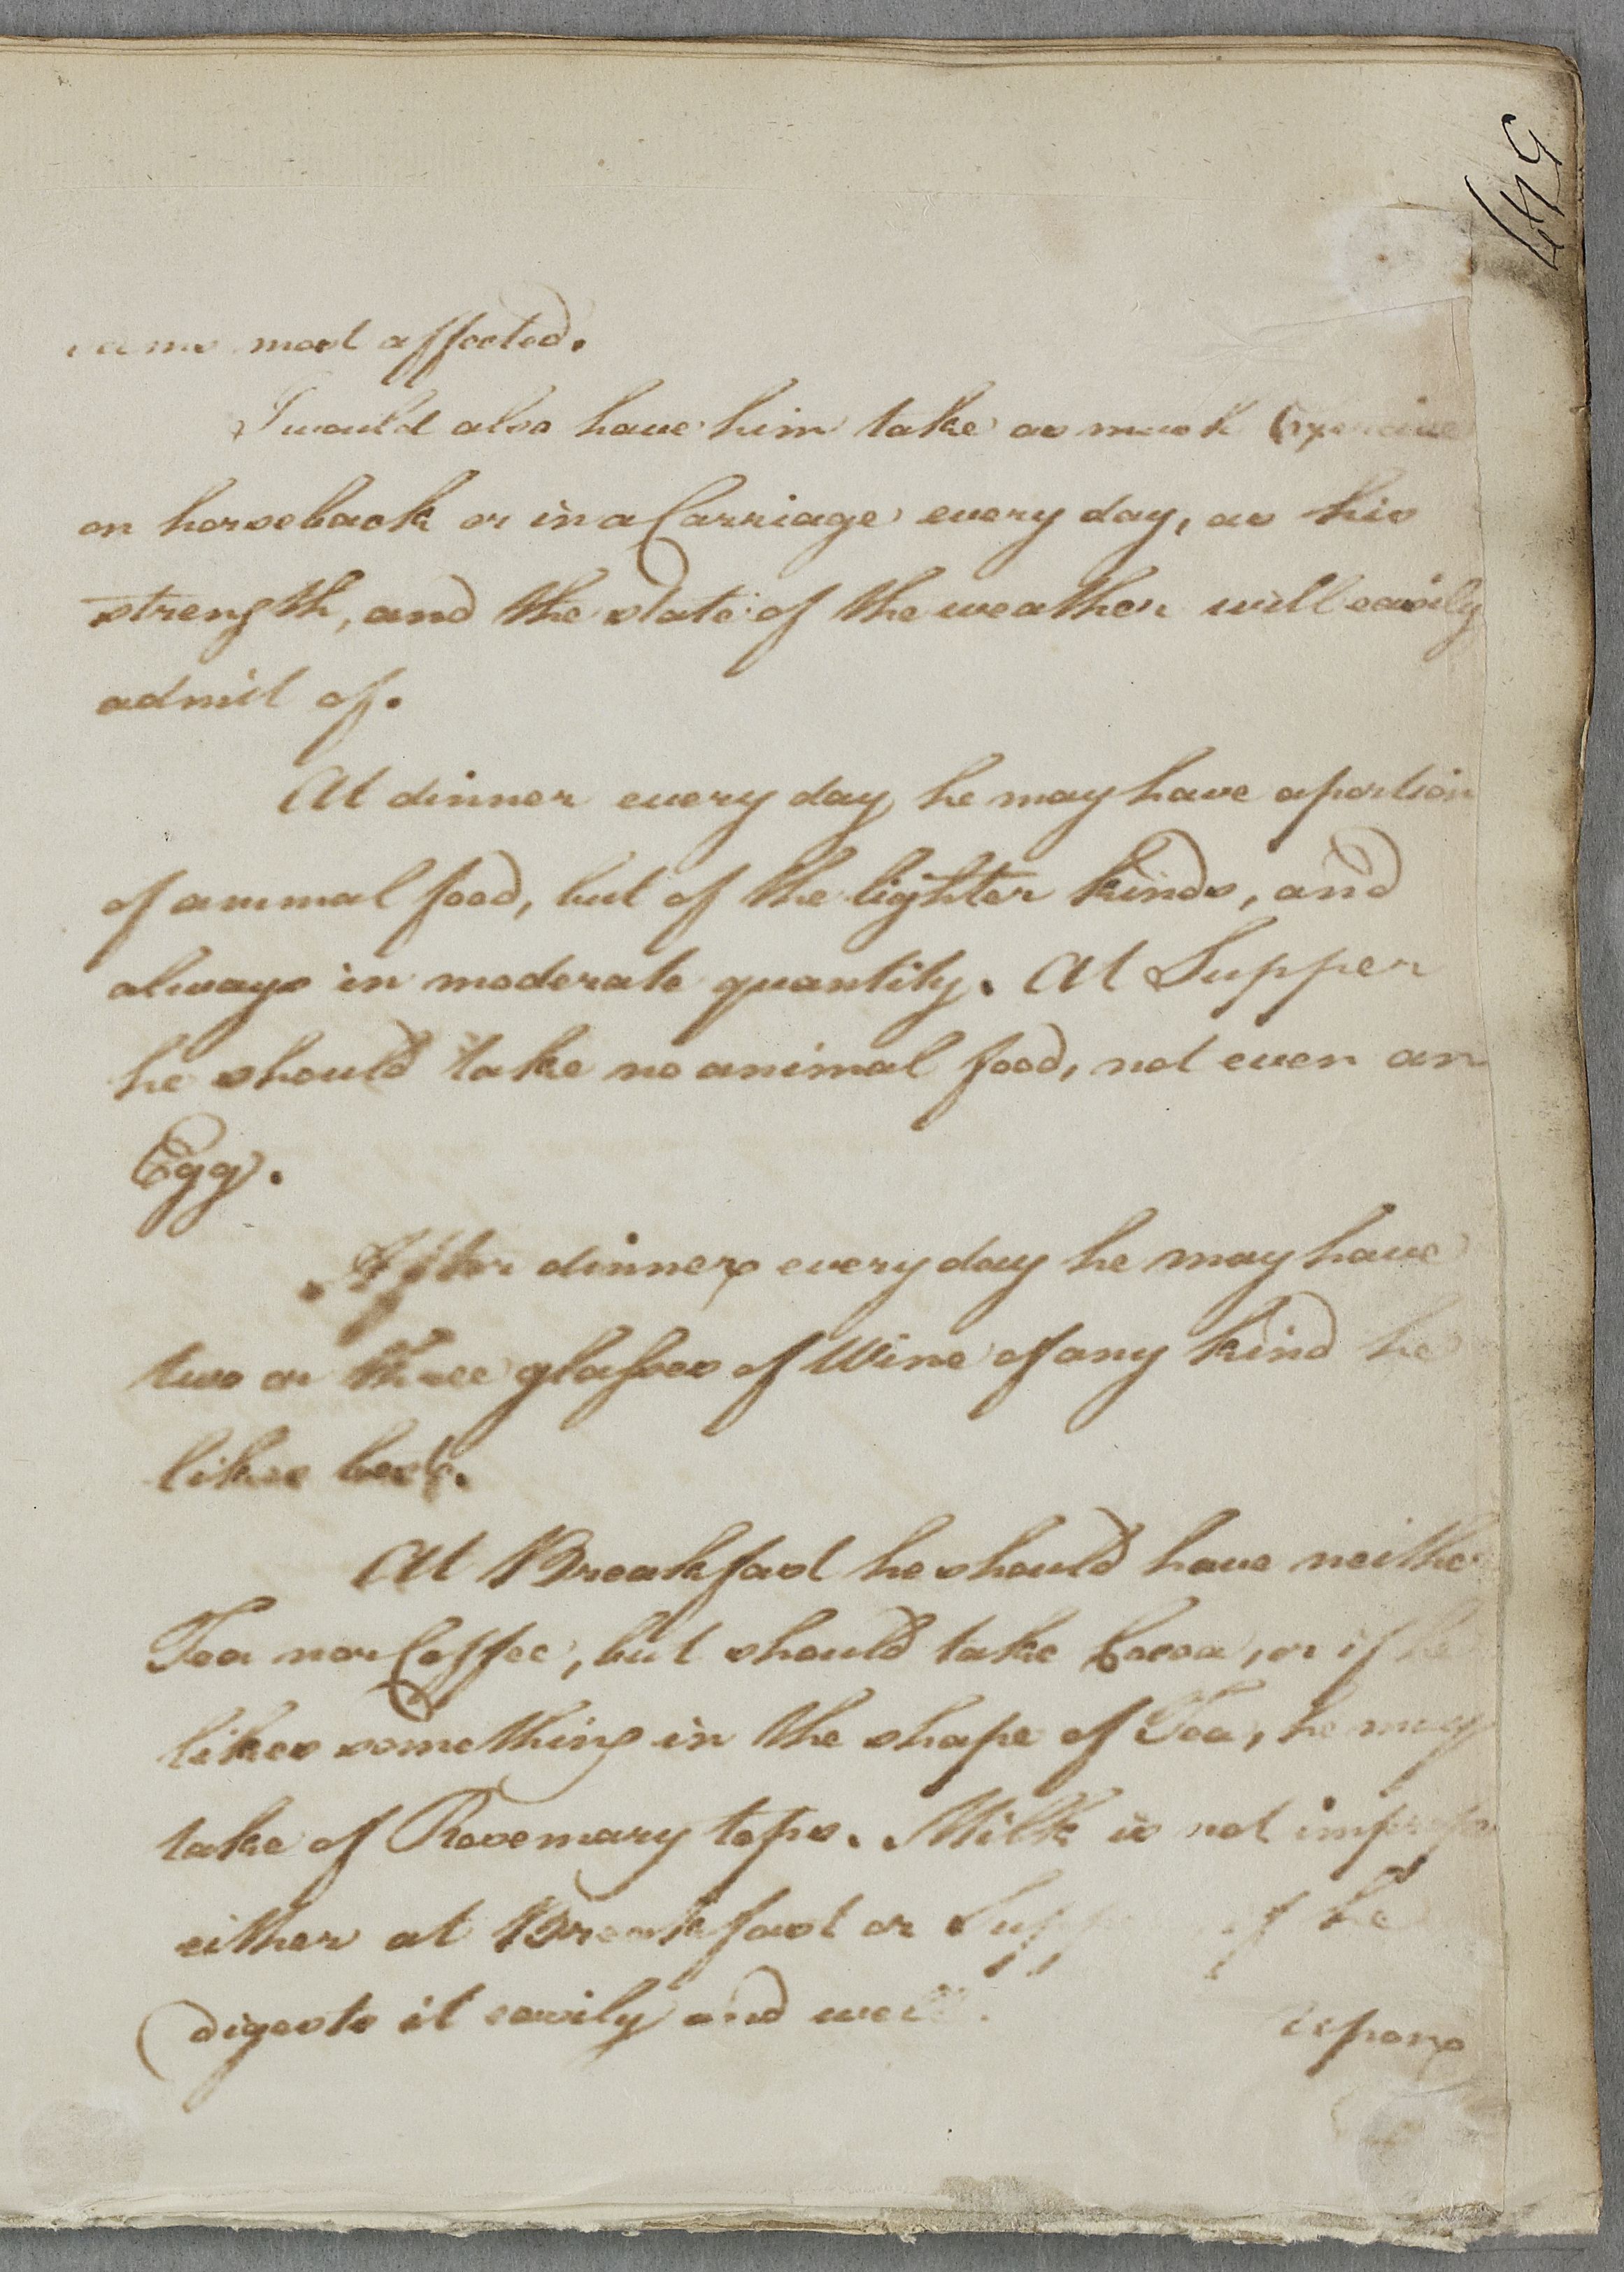 547
most affected.
I would also have him take as much Exercise
on horseback or in a Carriage every day, as his
strength, and the state of the weather will easily
admit of.
At dinner every day, he may have a portion
of animal food, but of the lighter kinds, and
always in moderate quantity. At Supper
he should take no animal food, not even an
Egg.
After dinner every day he may have
two or three glasses of Wine of any kind he
likes best.
At Breakfast he should have neither
Tea nor Coffee, but should take Cocoa, or if he
likes something in the shape of Tea, he may
take of Rosemary tops. Milk is not improper
either at Breakfast or Supper if he
digests it easily and well.
Upon